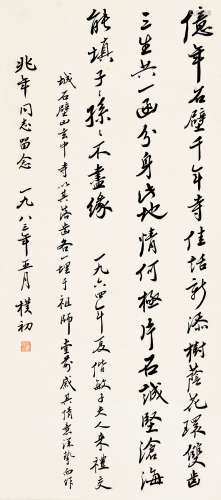 億年石壁千年寺佳話新添樹蔭花環雙齒
三生共一函分身此地情何極片石誠堅滄海
能填子子孫孫不盡緣 一九六四年夏偕敏子夫人來禮交
城石壁山玄中寺以其落齒各一埋于祖師堂前感其情意深摯而作
兆年同志留念 一九八三年五月 樸初